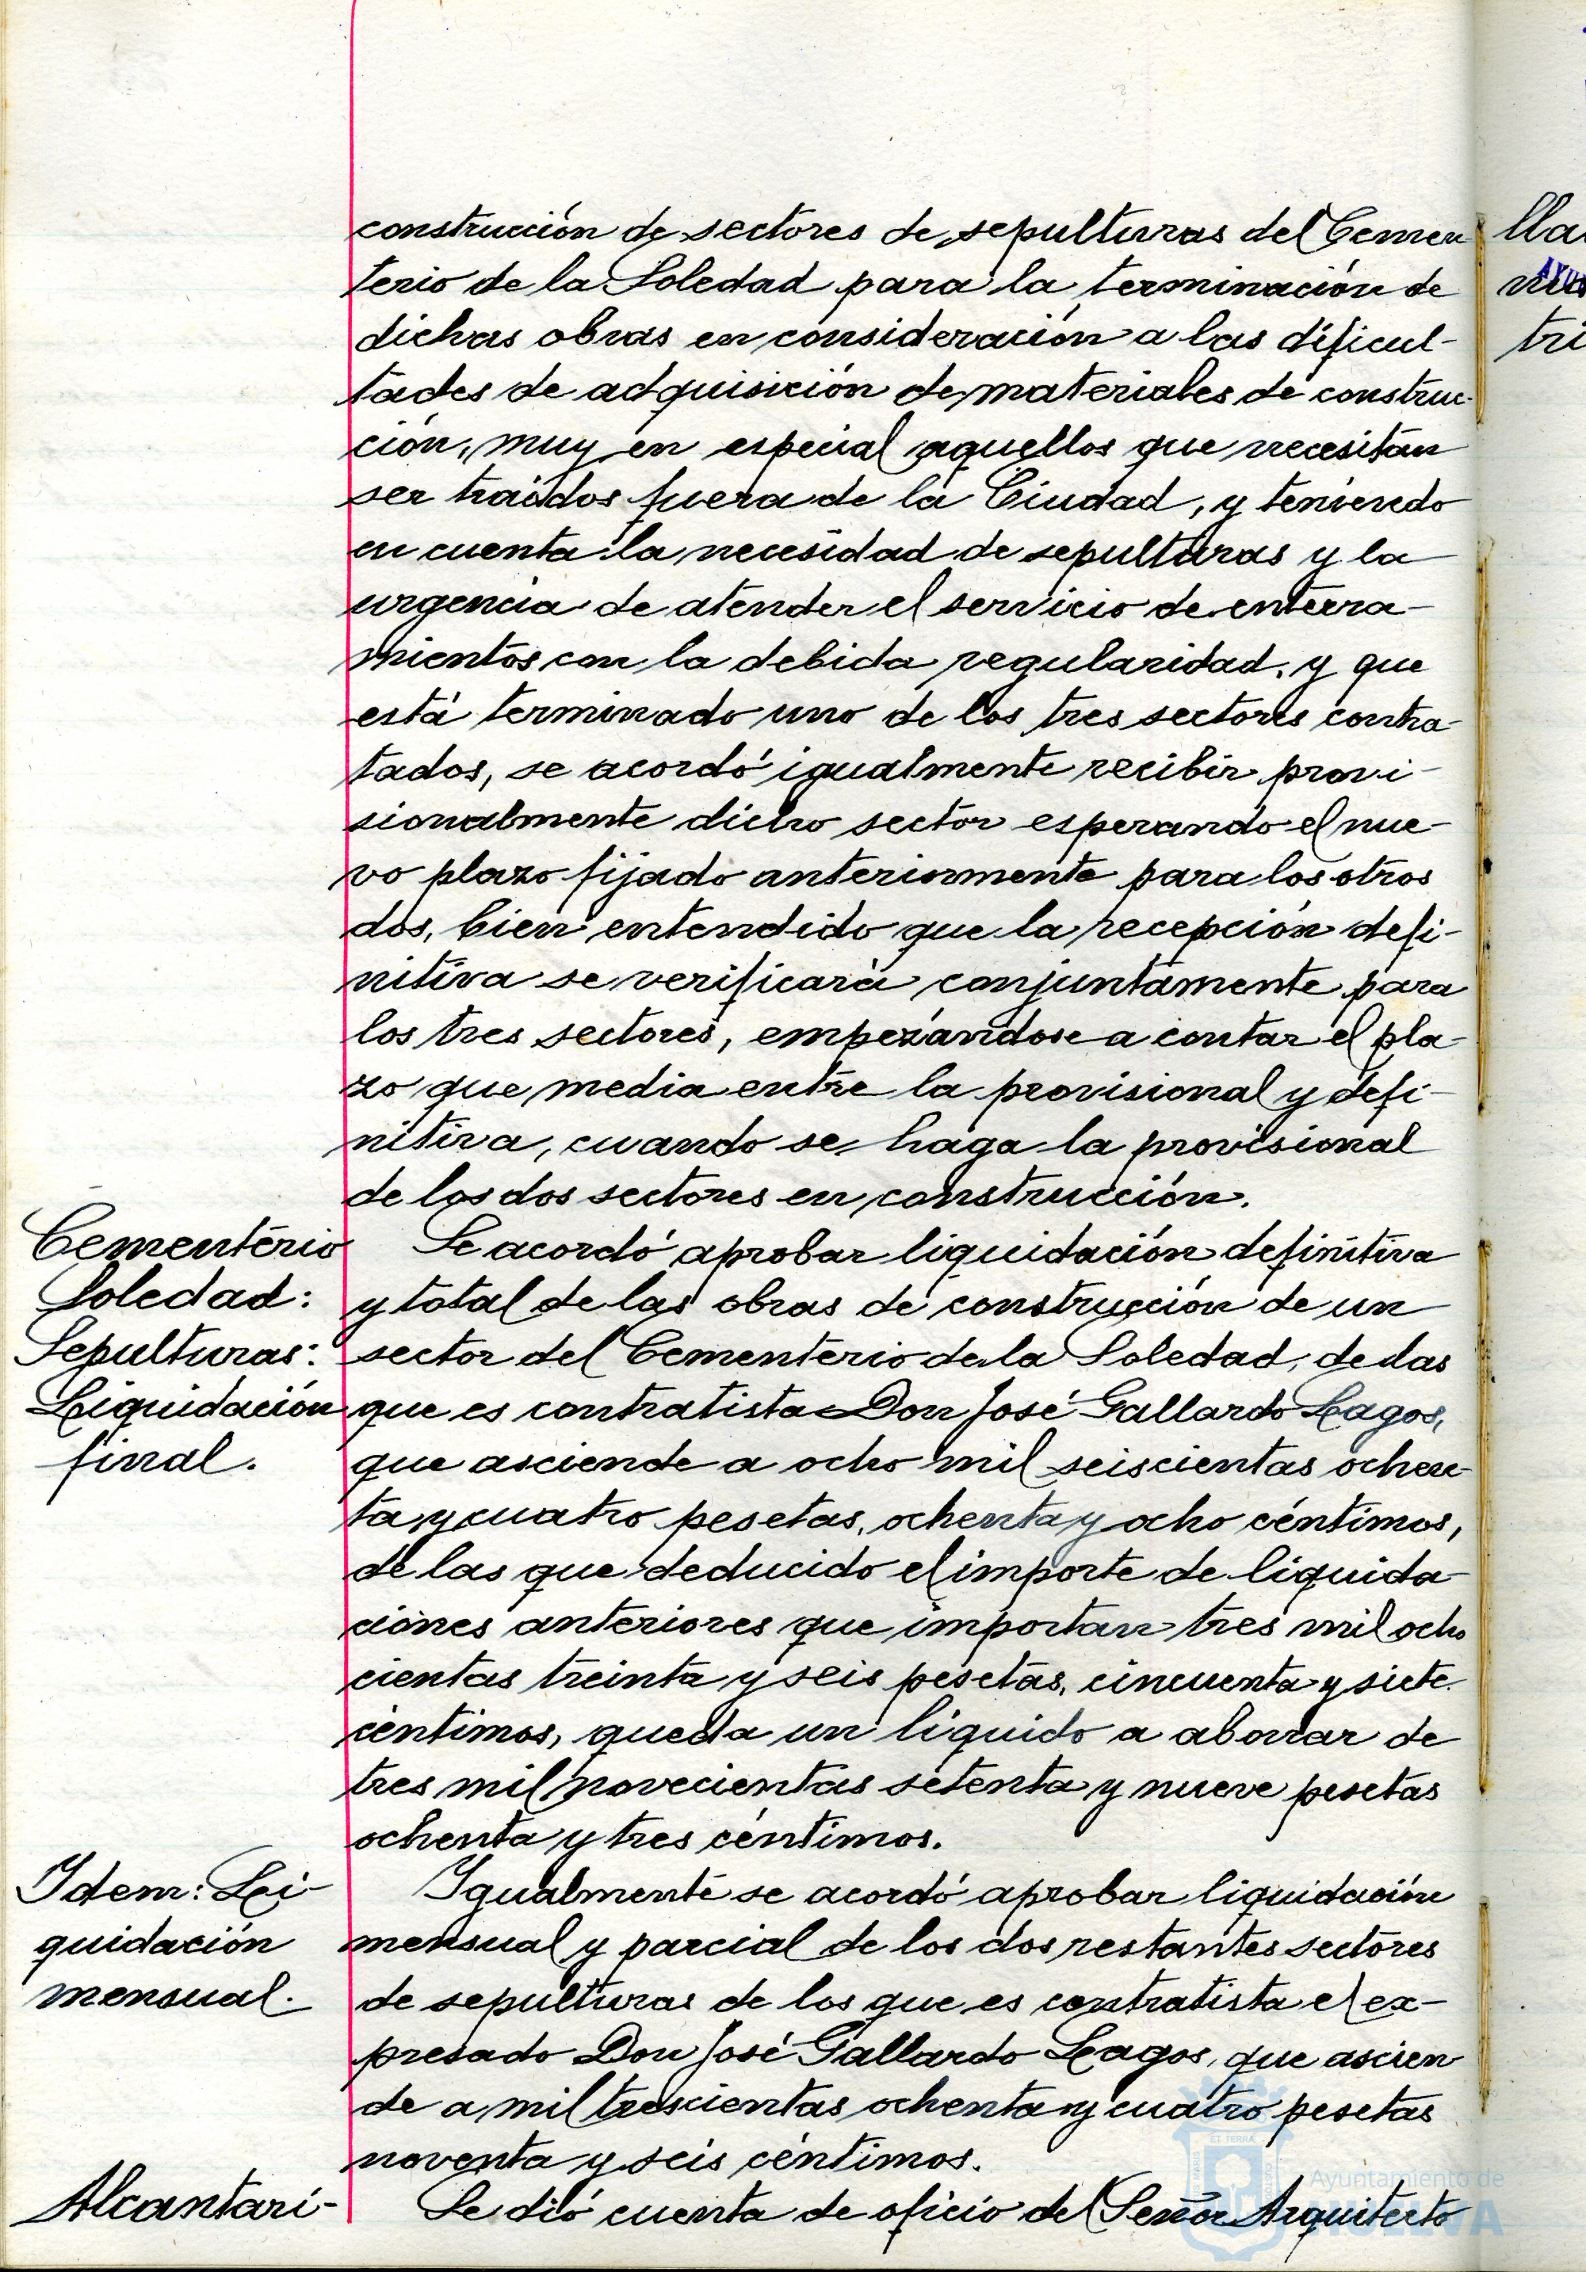 construcción de sectores de sepulturas del Cemen
terio de la Soledad para la terminación de
dichas obras en consideración a las dificul-
tades de adquisición de materiales de construc-
ción, muy en especial aquellos que necesitan
ser traidos fuera de la Ciudad, y teniendo
en cuenta la necesidad de sepulturas y la
urgencia de atender el servicio de enterra-
mientos con la debida regularidad, y que
está terminado uno de los tres sectores contra-
tados, se acordó igualmente recibir provi-
sionalmente dicho sector esperando el nue-
vo plazo fijado anteriormente para los otros
dos, bien entendido que la recepción defi-
nitiva se verificará conjuntamente para
los tres sectores, empezándose a contar el pla-
zo que media entre la provisional y defi-
nitiva, cuando se haga la provisional
de los dos sectores en construcción.
Cementerio
Soledad:
Sepulturas:
Liquidación
final.
Se acordó aprobar liquidación definitiva
y total de las obras de construcción de un
sector del Cementerio de la Soledad, de las
que es contratista Don José Gallardo Lagos,
que asciende a ocho mil seiscientas ochen-
ta y cuatro pesetas, ochenta y ocho céntimos,
de las que deducido el importe de liquida-
ciones anteriores que importan tres mil ocho
cientas treinta y seis pesetas, cincuenta y siete
centimos, queda un liquido a abonar de
tres mil novecientas setenta y nueve pesetas
ochenta y tres céntimos.
Idem: Li-
quidación
mensual.
Igualmente se acordó aprobar liquidación
mensual y parcial de los dos restantes sectores
de sepulturas de los que es contratista el ex-
presado Don José Gallardo Lagos, que ascien
de a mil trescientas ochenta y cuatro pesetas
noventa y seis céntimos.
Alcantari-
Se dió cuenta de oficio del Señor Arquitecto
lla
tri
Ayuntamiento de
HUELVA